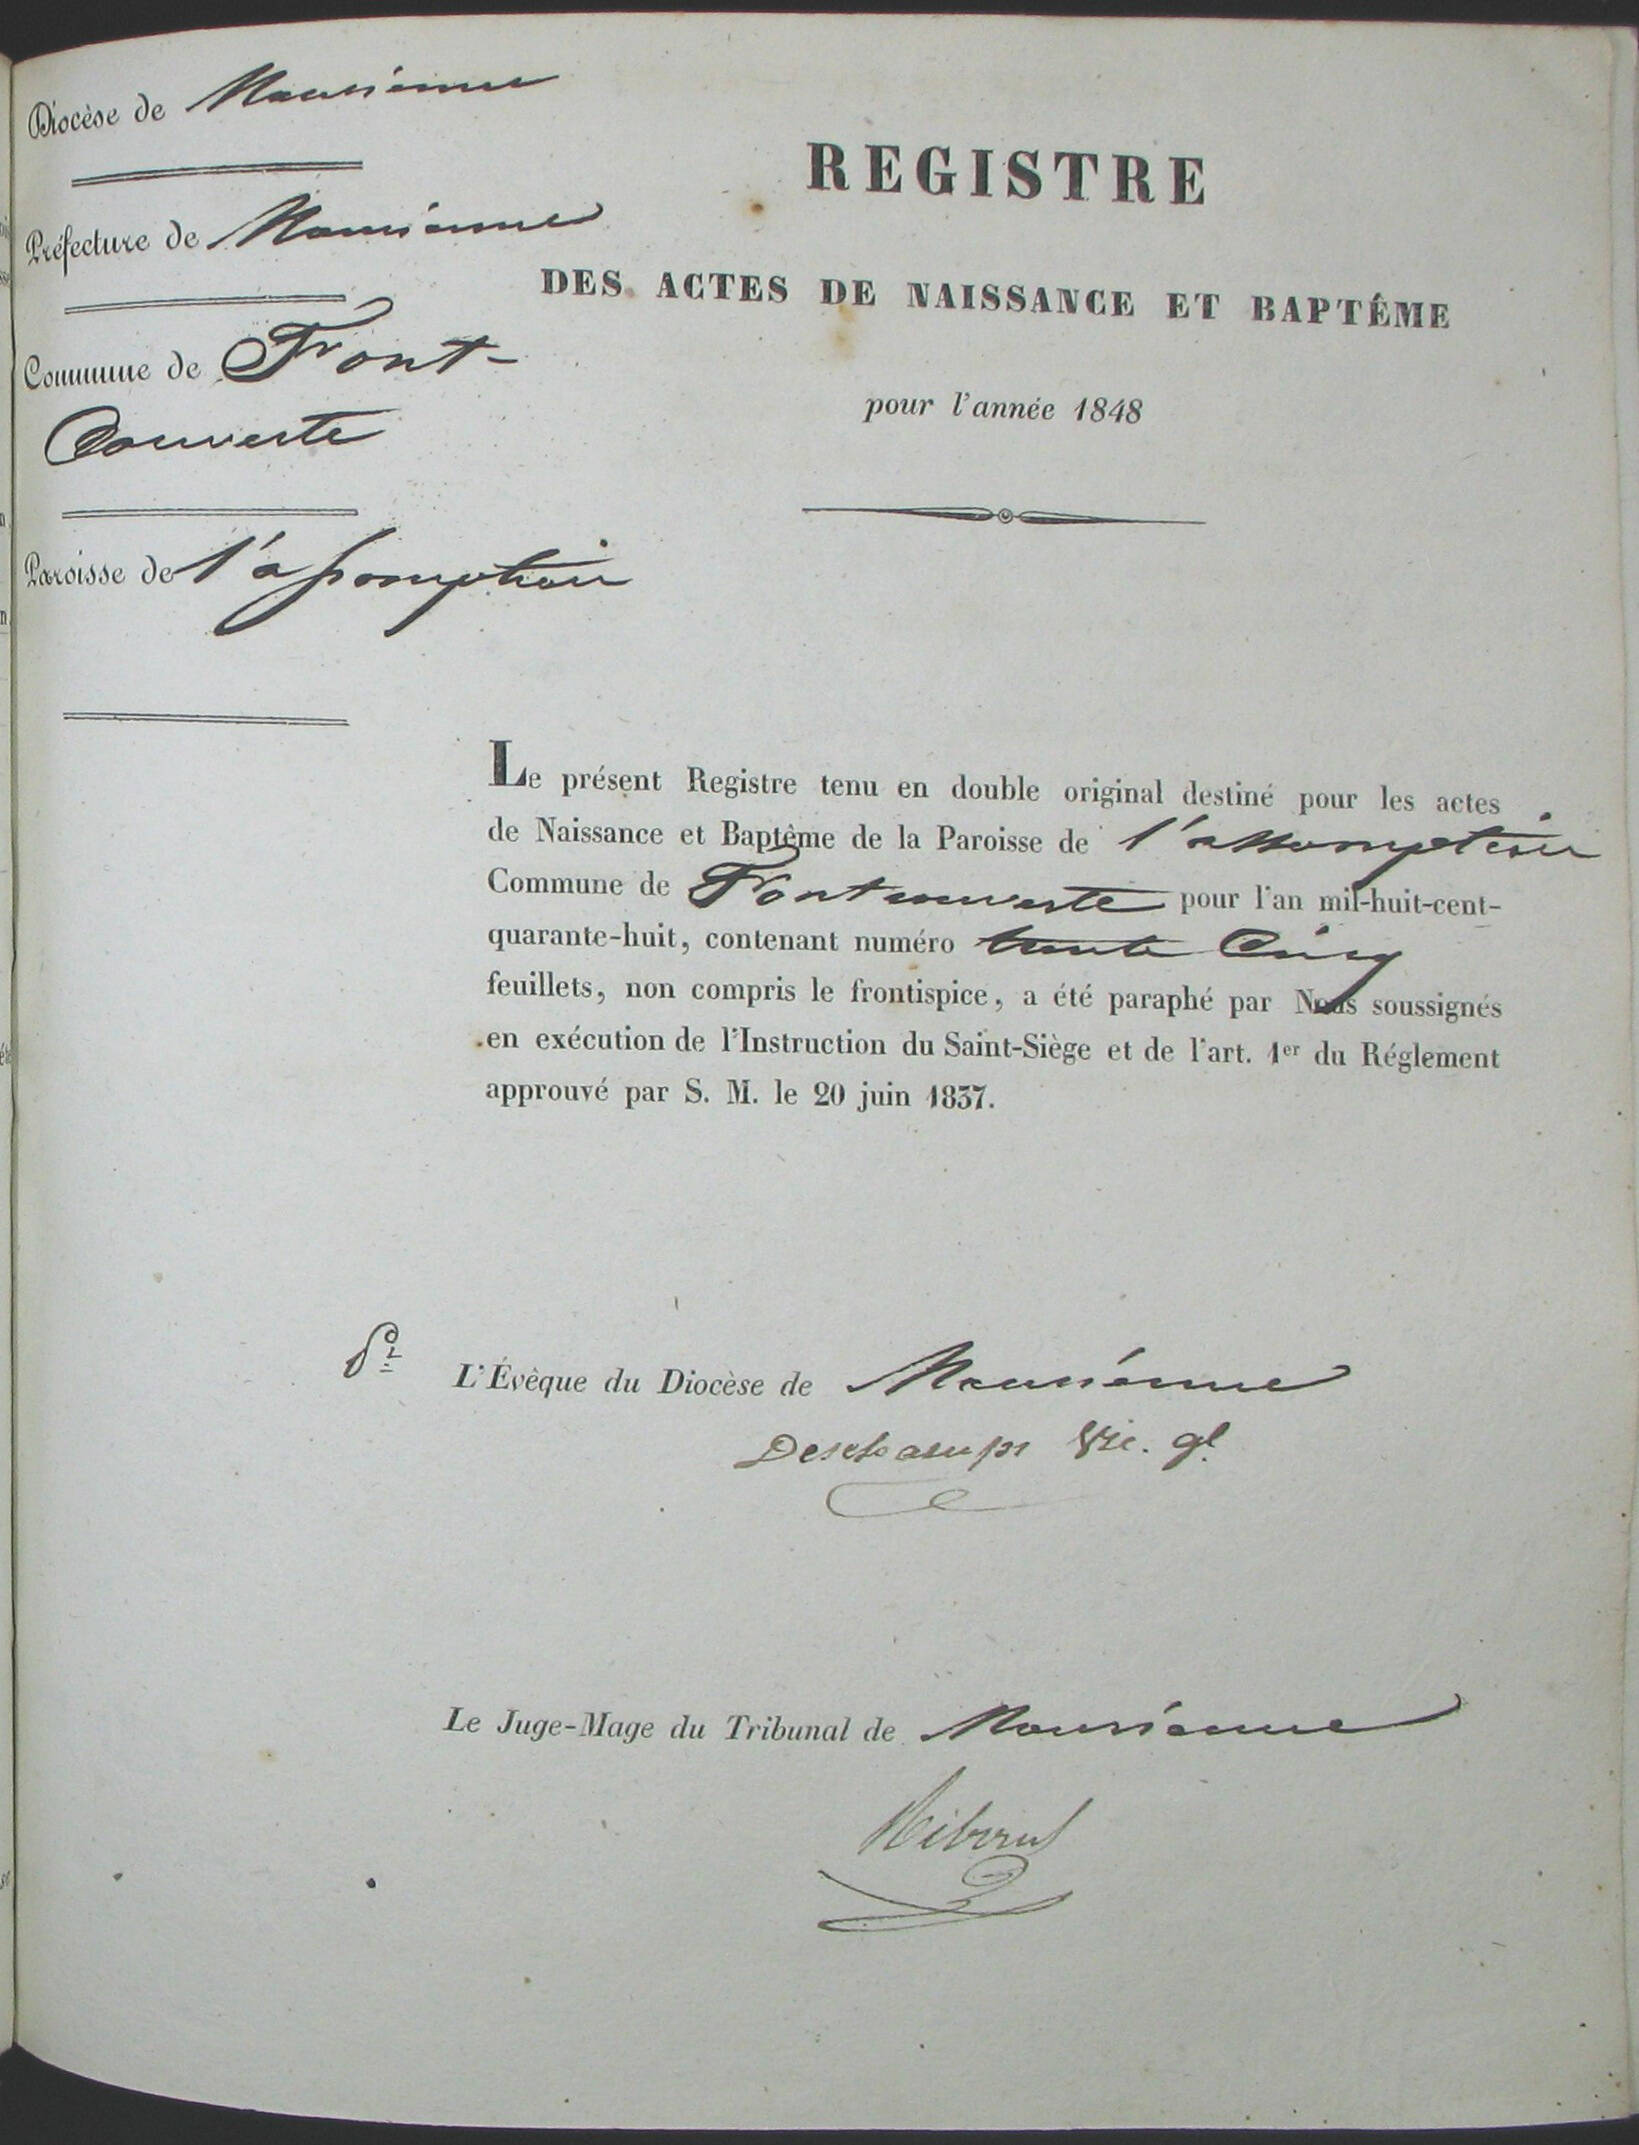 Diocèse de Maurienne
Préfecture de Maurienne
Commune de Font-
Couverte
Paroisse de l'assomption
REGISTRE
DES ACTES DE NAISSANCE ET BAPTÊME
pour l'année 1848
Le présent Registre tenu en double original destiné pour les actes
de Naissance et Baptême de la Paroisse de l'assomption
Commune de Fontcouverte pour l'an mil-huit-cent-
quarante-huit, contenant numéro trente Cinq
feuillets, non compris le frontispice, a été paraphé par Nous soussignés
en exécution de l'Instruction du Saint-Siège et de l'art. 1er du Réglement
approuvé par S. M. le 20 juin 1837.
pr L'Évêque du Diocèse de Maurienne
Deschamps Vic. gl.
Le Juge-Mage du Tribunal de Maurienne